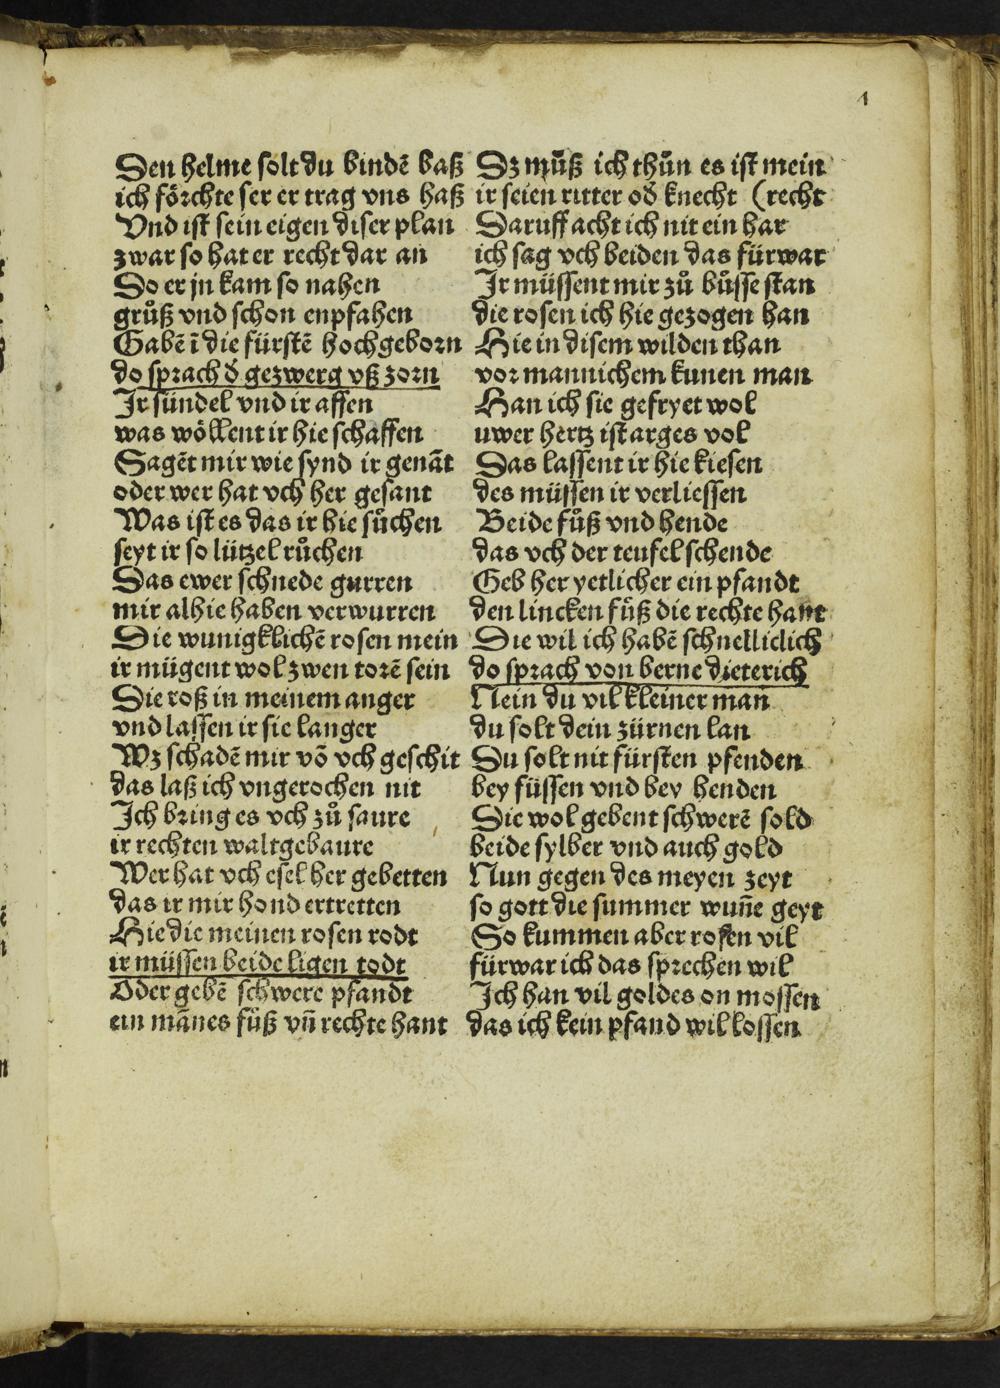 1
Den helme solt du bindē baß
ich förchte ser er trag vns haß
Vnd ist sein eigen diser plan
zwar so hat er recht dar an
So er jn kam so nahen
grůß vnd schon enpfahen
Gabē ī die fürstē hochgeborn
do sprach d̄ gezwerg vß zorn
Ir sündel vnd ir affen
was wöllent ir hie schaffen
Sagēt mir wie synd ir genāt
oder wer hat vch her gesant
Was ist es das ir hie sůchen
seyt ir so lützel růchen
Das ewer schnede gurren
mir alhie haben verwurren
Die wunigklichē rosen mein
ir mügent wol zwen torē sein
Die roß in meinem anger
vnd lassen ir sie langer
Wz schadē mir vō vch geschit
das laß ich vngerochen nit
Ich bring es vch zů saure
ir rechten waltgebaure
Wer hat vch esel her gebetten
das ir mir hond ertretten
Hie die meinen rosen rodt
ir müssen beide ligen todt
Oder gebē schwere pfandt
ein mānes fůß vn̄ rechte hant
Dz můß ich thůn es ist mein
ir seien ritter od̄ knecht (recht
Daruff acht ich nit ein har
ich sag vch beiden das fürwar
Ir müssent mir zů bůsse stan
die rosen ich hie gezogen han
Hie in disem wilden than
vor mannichem kunen man
Han ich sie gefryet wol
uwer hertz ist arges vol
Das lassent ir hie kiesen
des müssen ir verliessen
Beide fůß vnd hende
das vch der teufel schende
Geb her yetlicher ein pfandt
den lincken fůß die rechte hant
Die wil ich habē schnelliclich
do sprach von berne dieterich
Nein du vil kleiner man
du solt dein zürnen lan
Du solt nit fürsten pfenden
bey füssen vnd bey henden
Die wol gebent schwerē sold
beide sylber vnd auch gold
Nun gegen des meyen zeyt
so gott die summer wun̄e geyt
So kummen aber rosen vil
fürwar ich das sprechen wil
Ich han vil goldes on mossen
das ich kein pfand wil lossen